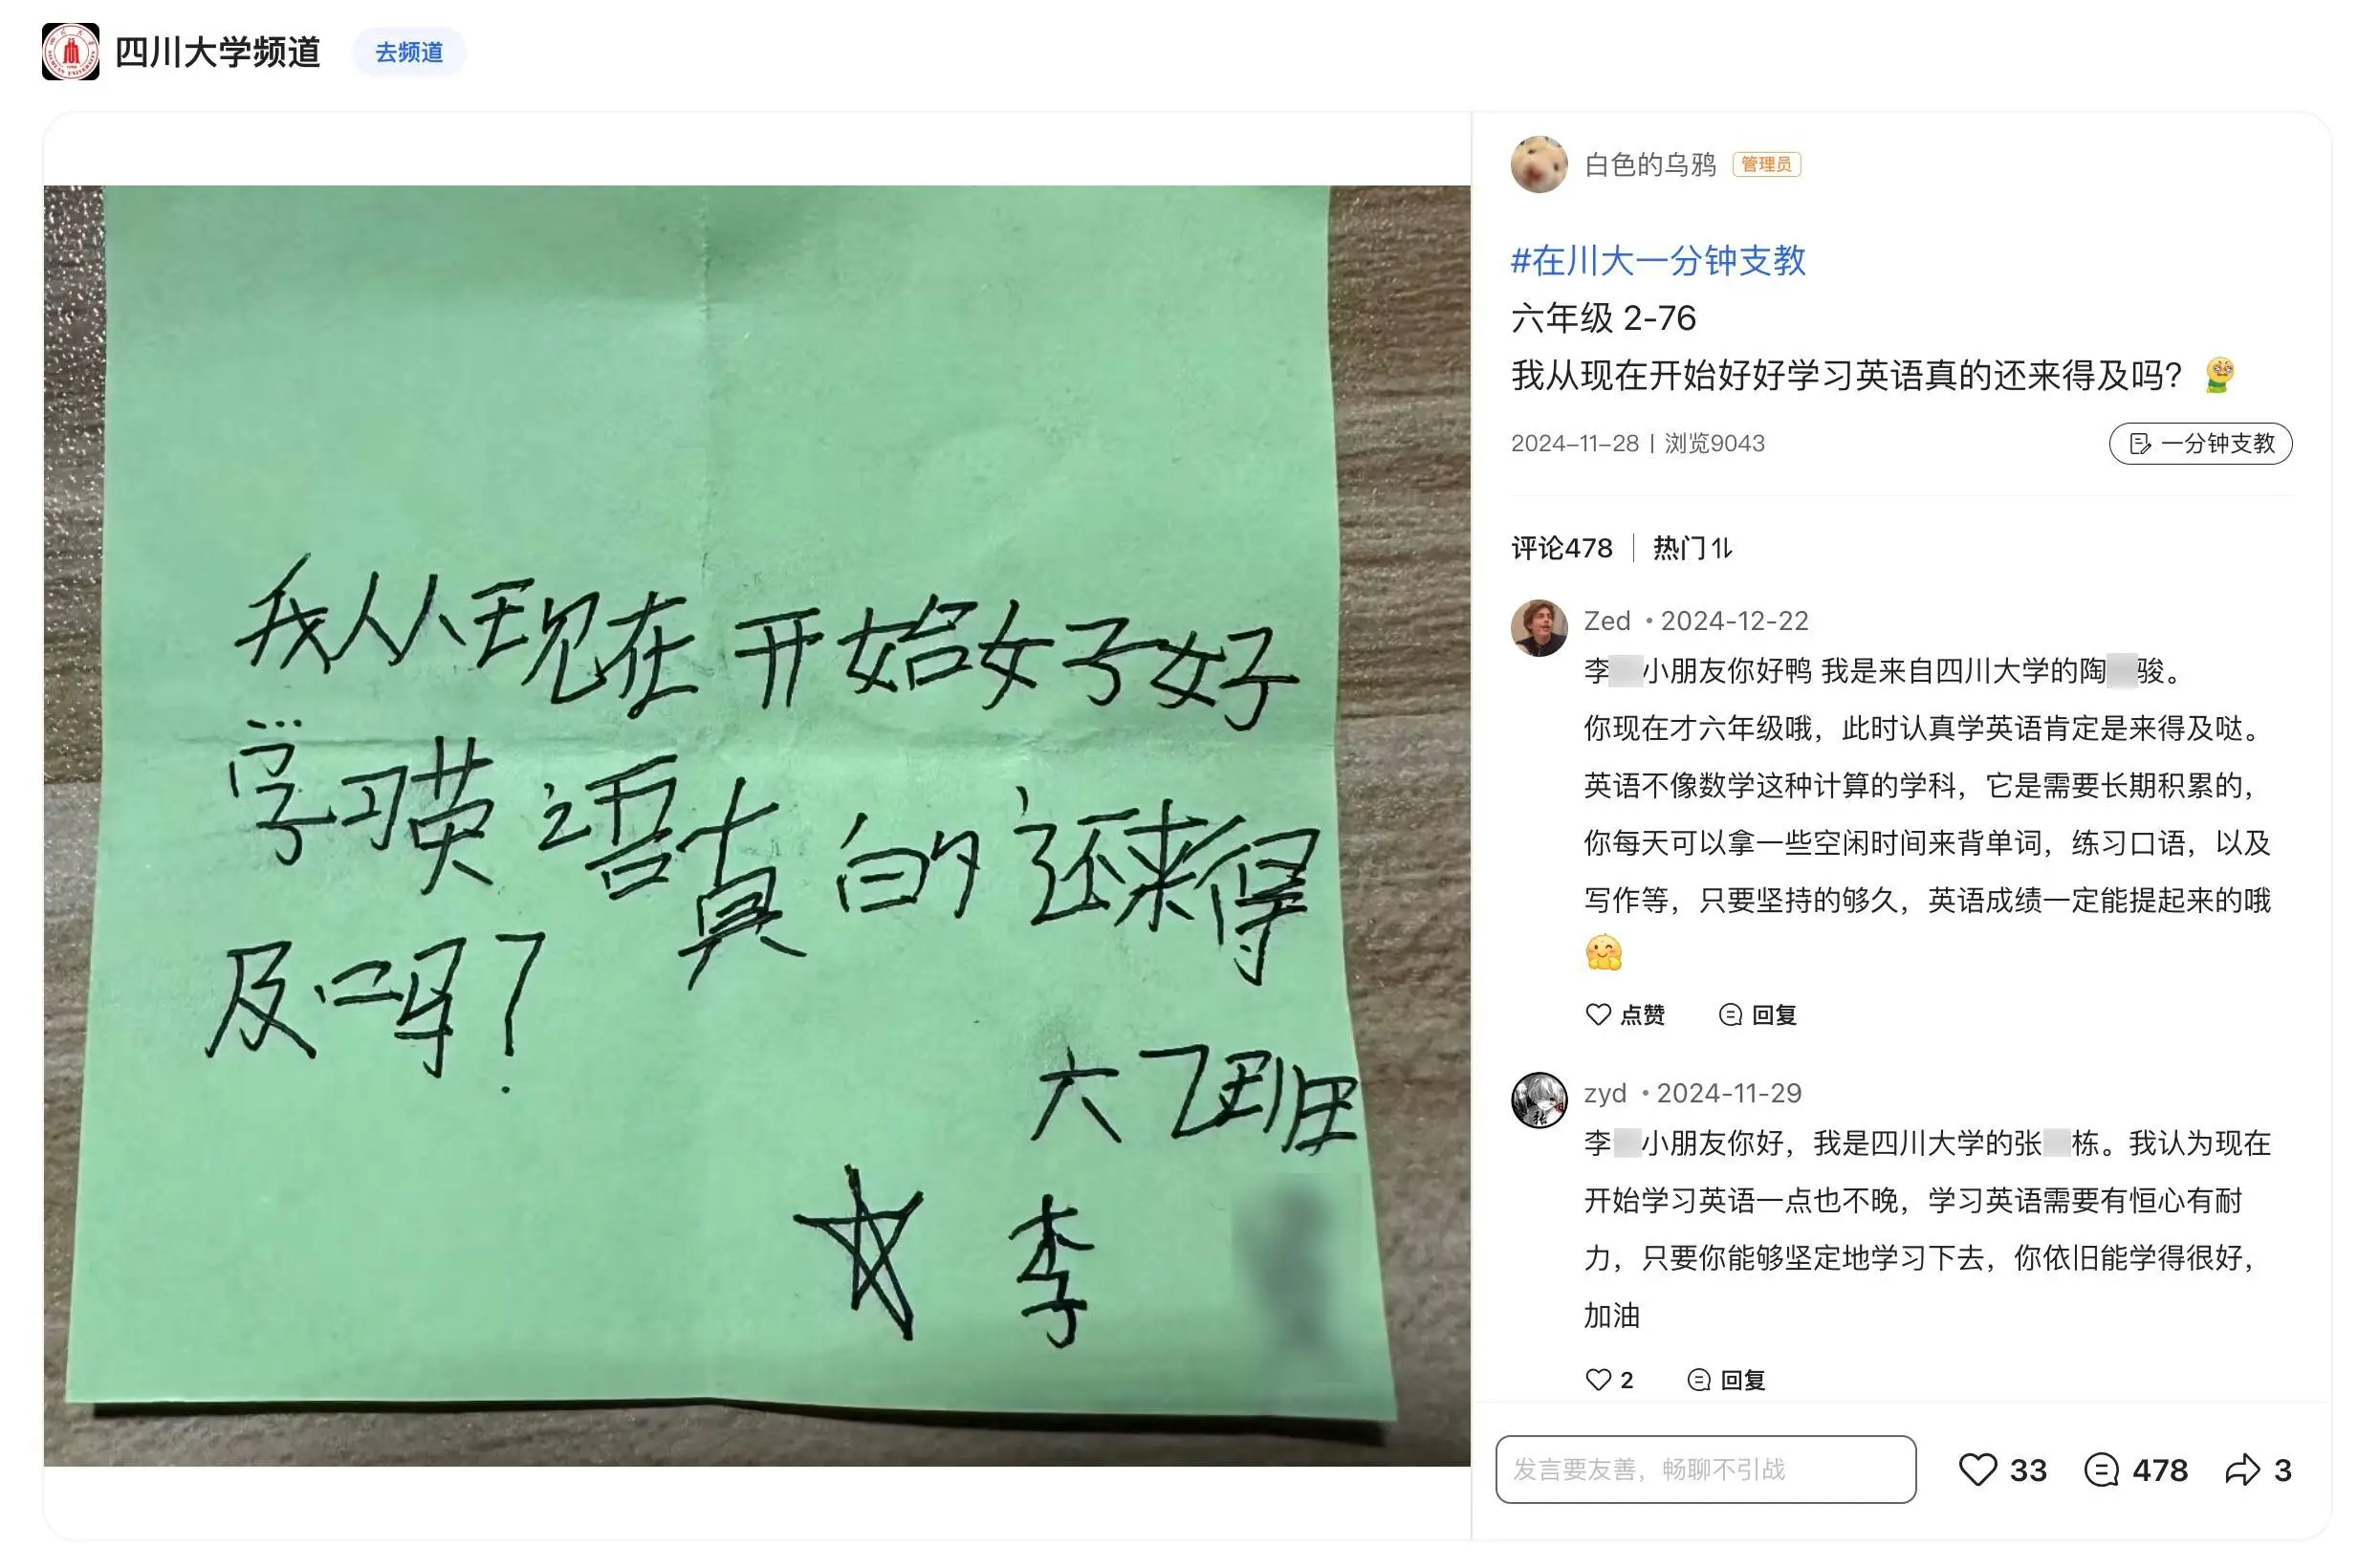 四川大学频道 去频道
我从现在开始好好
学习英语真的还来得
及吗?
六2班
李
白色的乌鸦 管理员
#在川大一分钟支教
六年级 2-76
我从现在开始好好学习英语真的还来得及吗?
2024-11-28 | 浏览9043 一分钟支教
评论478 | 热门
Zed • 2024-12-22
李 小朋友你好鸭 我是来自四川大学的陶 骏。
你现在才六年级哦，此时认真学英语肯定是来得及哒。
英语不像数学这种计算的学科，它是需要长期积累的，
你每天可以拿一些空闲时间来背单词，练习口语，以及
写作等，只要坚持的够久，英语成绩一定能提起来的哦
点赞 回复
zyd • 2024-11-29
李 小朋友你好，我是四川大学的张 栋。我认为现在
开始学习英语一点也不晚，学习英语需要有恒心有耐
力，只要你能够坚定地学习下去，你依旧能学得很好，
加油
2 回复
发言要友善，畅聊不引战 33 478 3